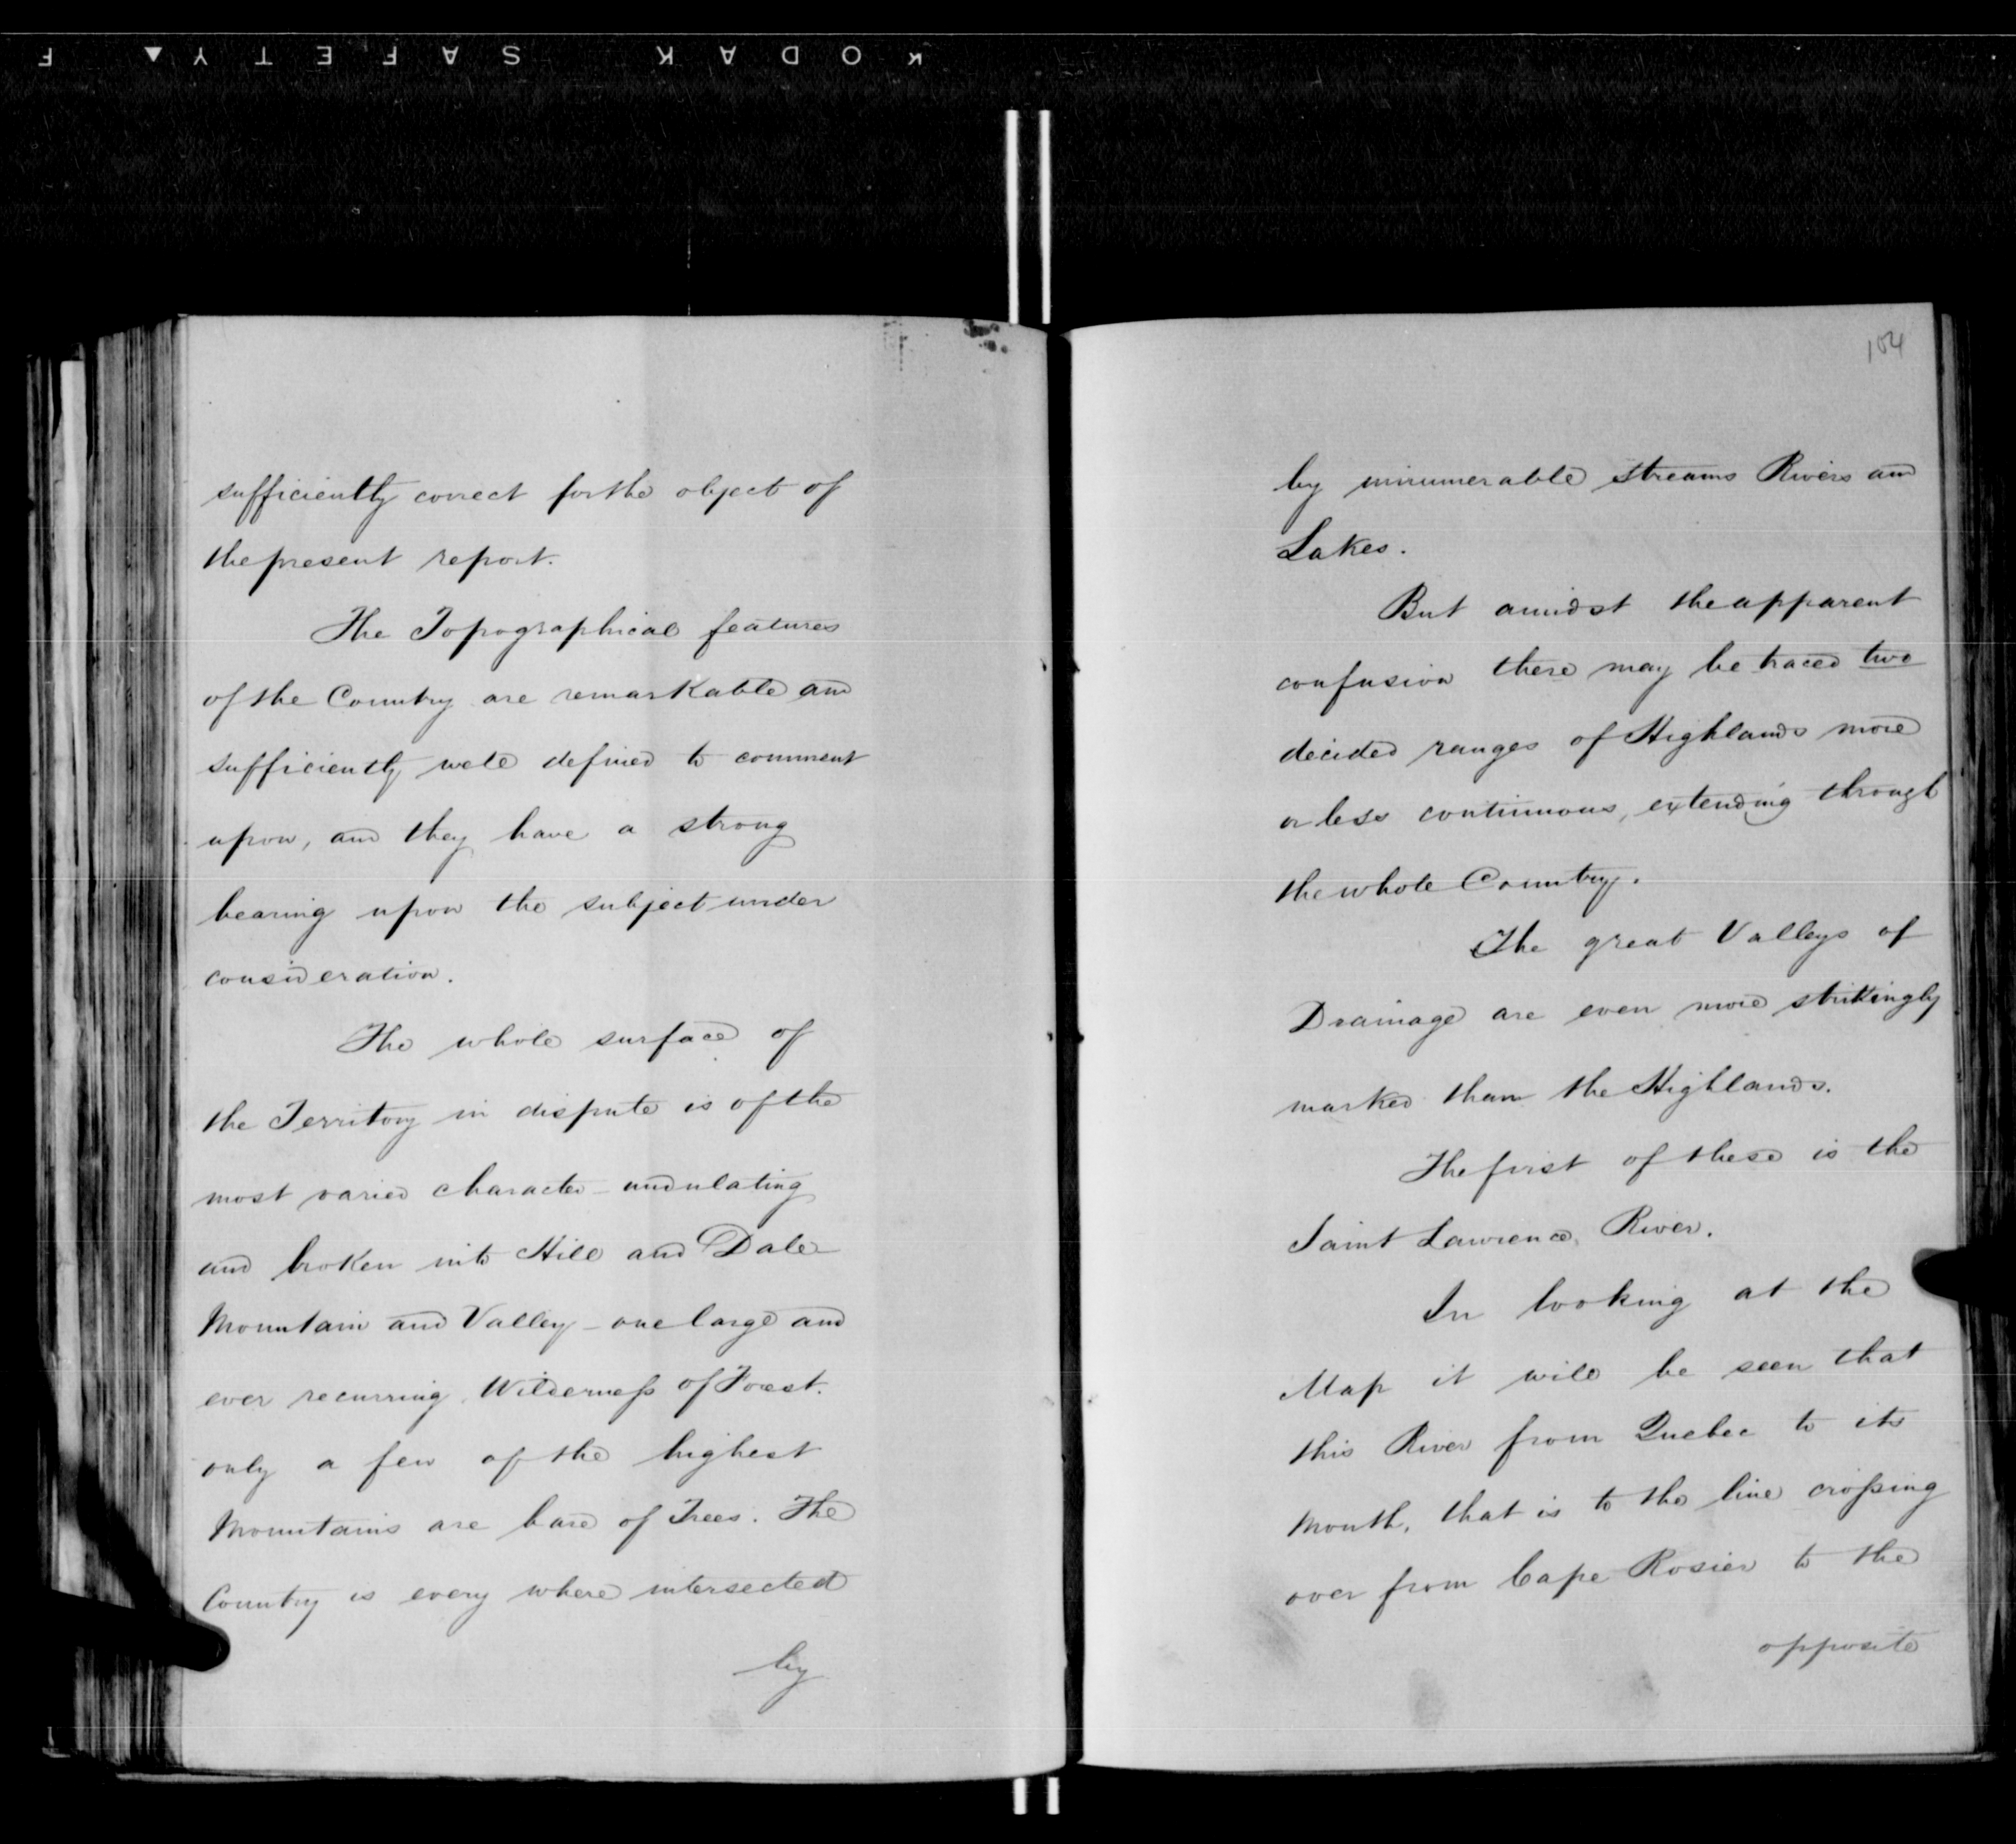 KODAK SAFETY ▲ F
sufficiently correct for the object of
the present report.
The Topographical features
of the Country are remarkable and
sufficiently well defined to comment
upon, and they have a strong
bearing upon the subject under
consideration.
The whole surface of
the Territory in dispute is of the
most varied character - undulating
and broken into Hill and Dale
Mountain and Valley - one large and
ever recurring Wilderness of Forest.
only a few of the highest
Mountains are bare of Trees. The
Country is every where intersected
by
104
by innumerable streams Rivers and
Lakes.
But amidst the apparent
confusion there may be traced two
decided ranges of Highlands more
or less continuous, extending through
the whole Country.
The great Valleys of
Drainage are even more strikingly
marked than the Highlands.
The first of these is the
Saint Lawrence River.
In looking at the
Map it will be seen that
this River from Quebec to its
Mouth, that is to the line crossing
over from Cape Rosier to the
opposite